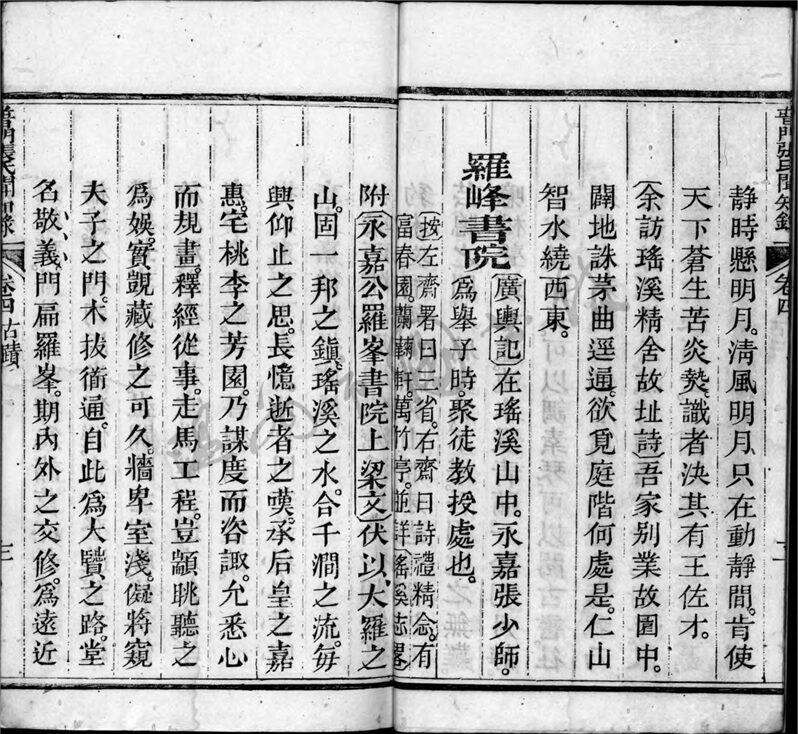 普門張氏聞知錄
卷四
二
靜時懸明月。清風明月。只在動靜間。肯使
天下蒼生苦炎𤍠。識者決其有王佐才。
余訪瑤溪精舍故址詩吾家別業故園中。
闢地誅茅曲逕通。欲覓庭階何處是。仁山
智水繞西東。
羅峰書院廣輿記在瑤溪山中。永嘉張少師。
為舉子時。聚徒教授處也。
按左齋署曰三省。右齋曰詩禮精舍。有
富春園。蘭蘇軒。萬竹亭。並詳瑤溪志畧
附永嘉公羅峯書院上梁文伏以大羅之
山。固一邦之鎭。瑤溪之水。合千澗之流。每
興仰止之思。長憶逝者之嘆。承后皇之嘉
惠。宅桃李之芳園。乃謀度而咨諏。允悉心
而規畫。釋經從事。走馬工程。豈顓眺聽之
為娛。實覬藏修之可久。牆卑室淺。儗將窺
夫子之門。木拔衜通。自此為大賢之路。堂
名敬義。門扁羅峯。期內外之交修。為遠近
普門張氏聞知錄
卷四 古蹟
三